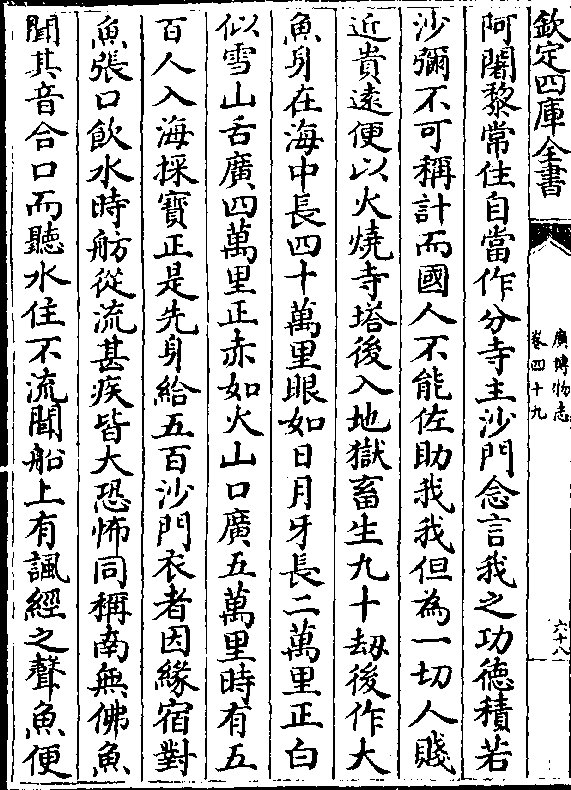 欽定四庫全書
廣博物志
卷四十九
六十八
阿闍黎常住自當作分寺主沙門念言我之功德積若
沙彌不可稱計而國人不能佐助我我但為一切人賤
近貴遠便以火燒寺塔後入地獄畜生九十劫後作大
魚身在海中長四十萬里眼如日月牙長二萬里正白
似雪山舌廣四萬里正赤如火山口廣五萬里時有五
百人入海採寶正是先身給五百沙門衣者因緣宿對
魚張口飲水時舫從流甚疾皆大恐怖同稱南無佛魚
聞其音合口而聽水住不流聞船上有諷經之聲魚便